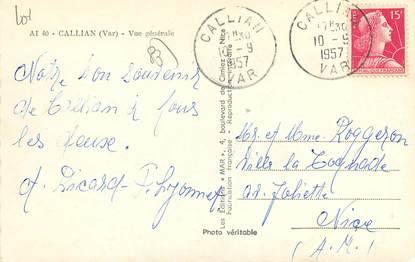 AI 40 - CALLIAN (Var) - Vue générale
CALLIAN
17H30
10-9
1957
VAR
CALLIAN
17H30
10-9
1957
VAR
15F
Notre bon souvenir
de Callian à tous
les deux.
Ricard
Mr. et Mme. Roggeron
Villa la
av. Joliette
Nice
(A.M.)
Les Editions "MAR", 4, boulevard de Cimiez - Nice
Fabrication française - Reproduction interdite
Photo véritable